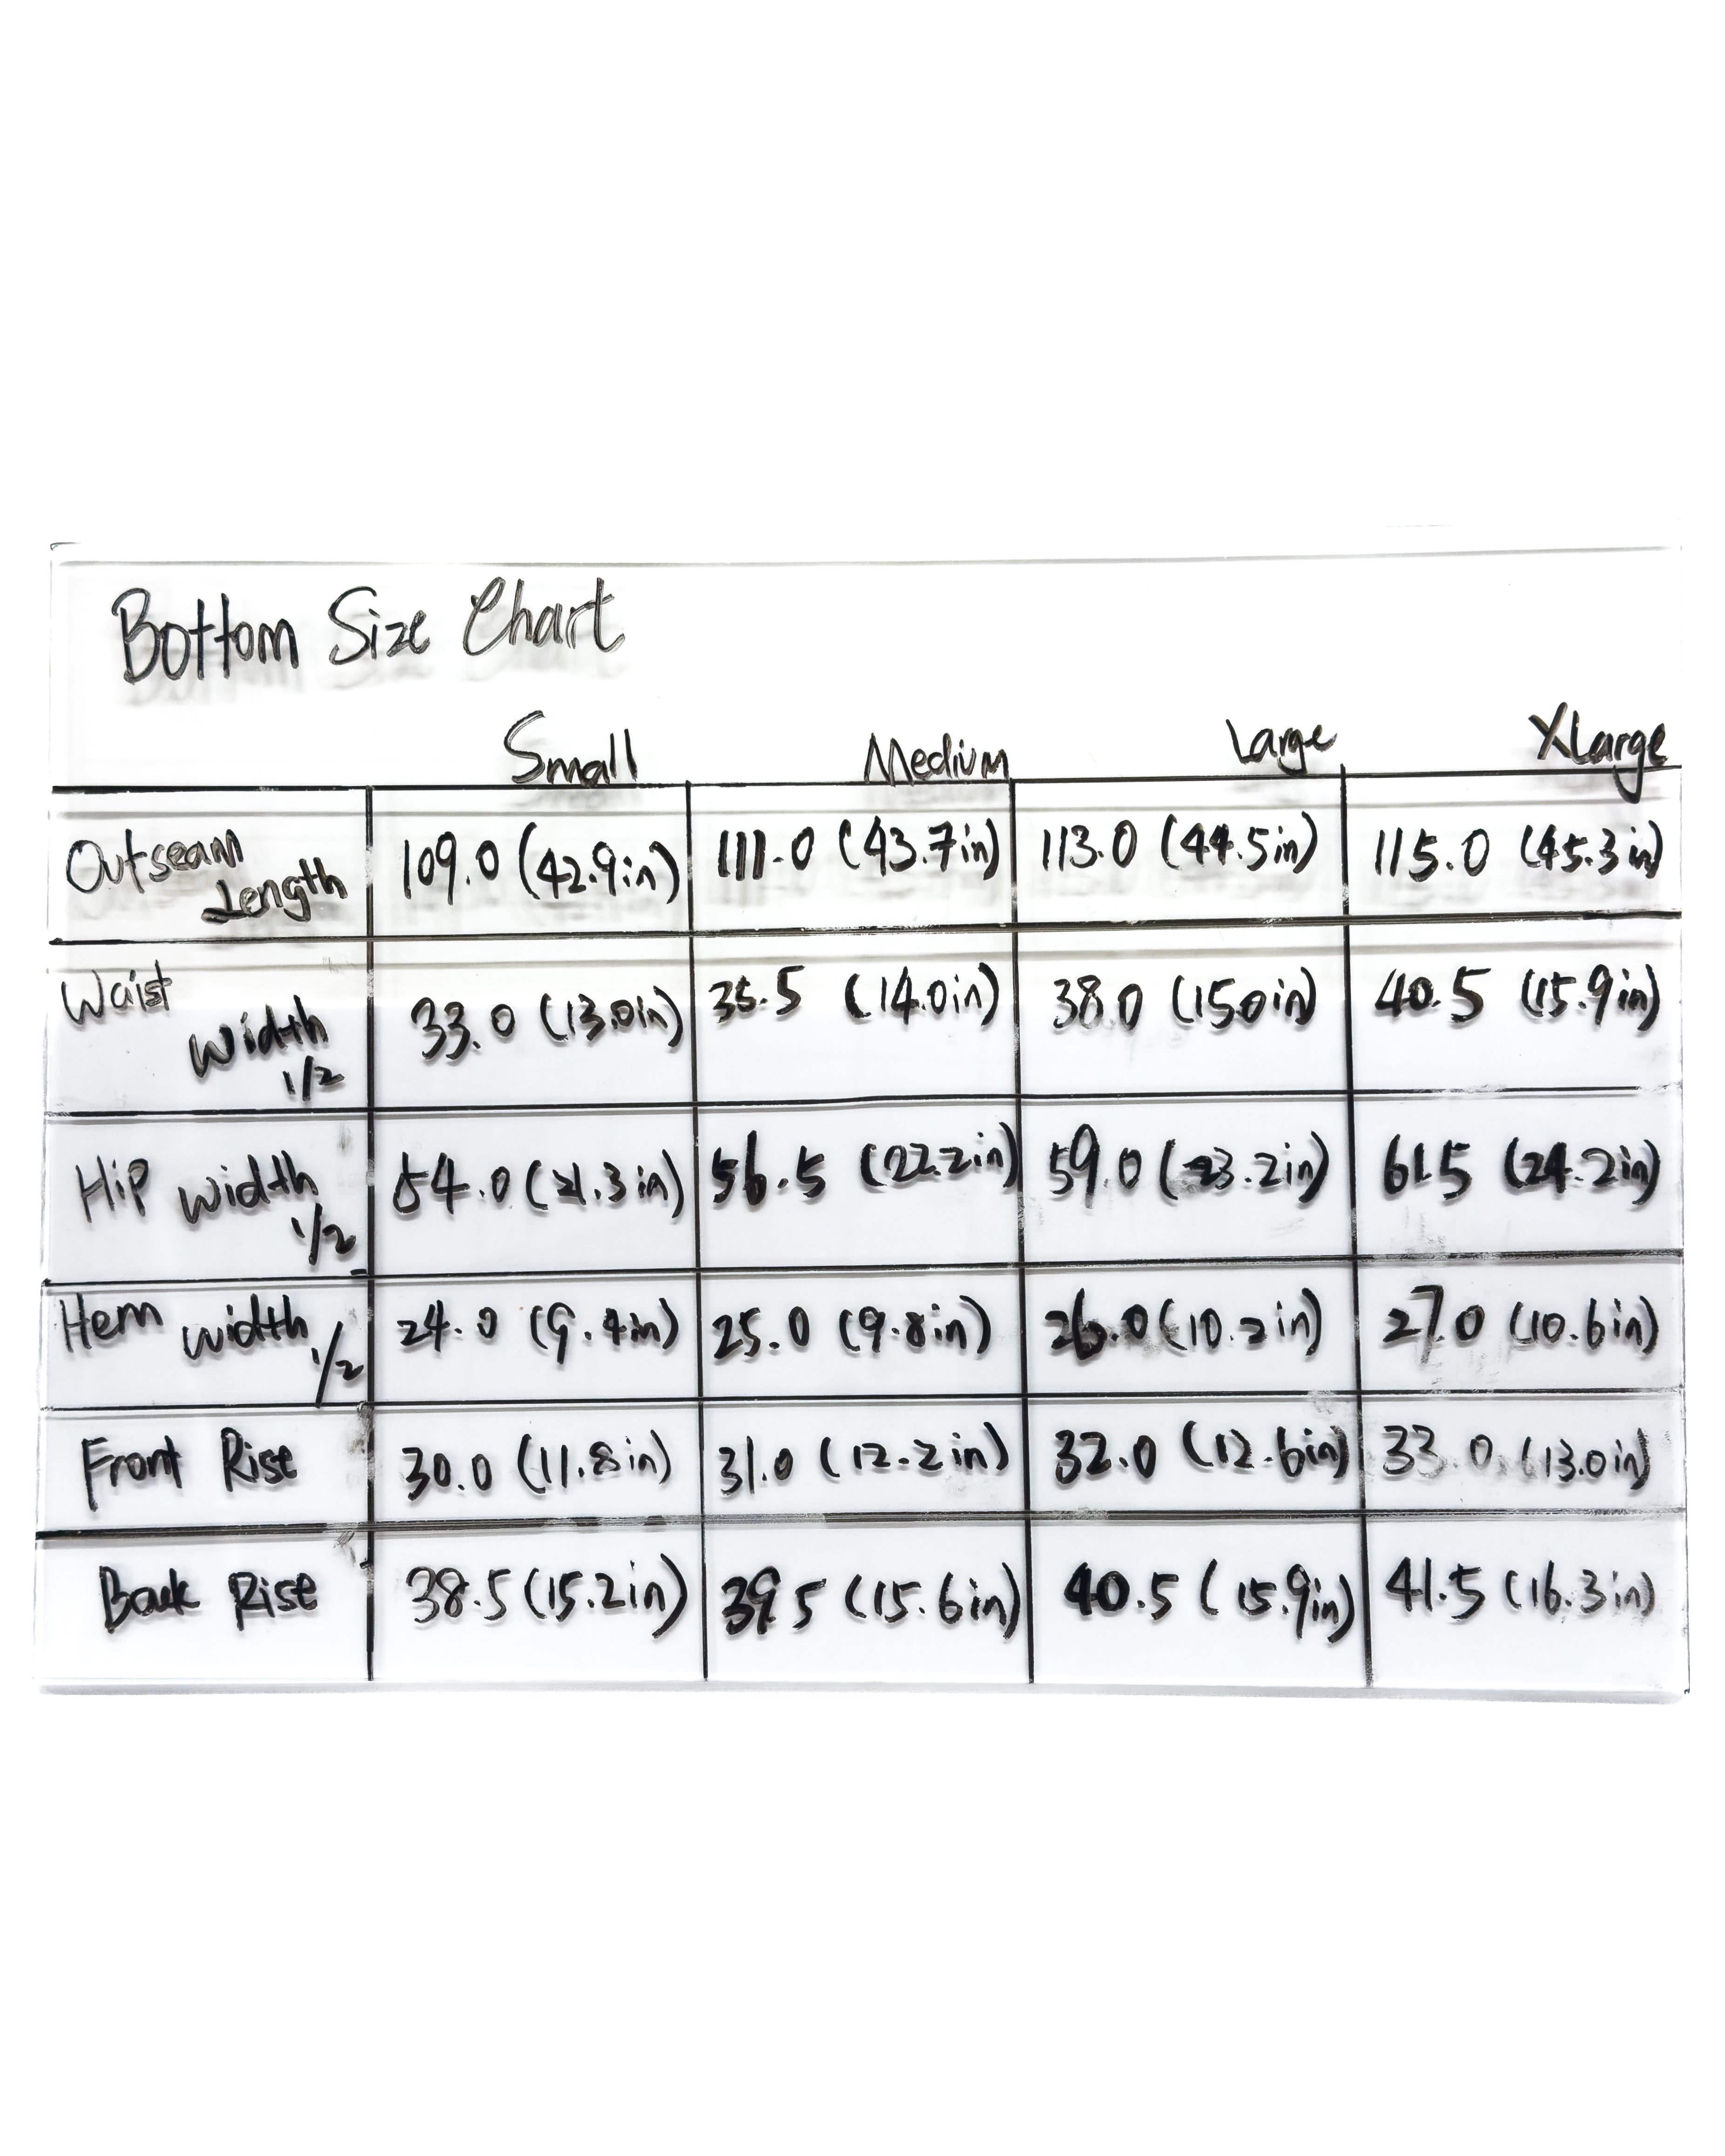 Bottom Size Chart
Small Medium Large XLarge
Outseam Length 109.0 (42.9in) 111.0 (43.7in) 113.0 (44.5in) 115.0 (45.3in)
Waist Width 1/2 33.0 (13.0in) 35.5 (14.0in) 38.0 (15.0in) 40.5 (15.9in)
Hip width 1/2 54.0 (21.3in) 56.5 (22.2in) 59.0 (23.2in) 61.5 (24.2in)
Hem width 1/2 24.0 (9.4in) 25.0 (9.8in) 26.0 (10.2in) 27.0 (10.6in)
Front Rise 30.0 (11.8in) 31.0 (12.2in) 32.0 (12.6in) 33.0 (13.0in)
Back Rise 38.5 (15.2in) 39.5 (15.6in) 40.5 (15.9in) 41.5 (16.3in)